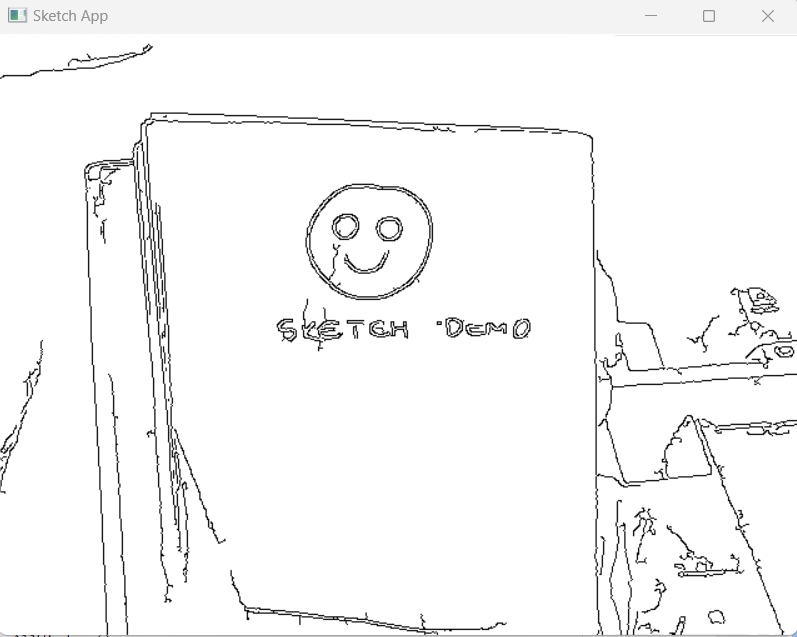 Sketch App
SKETCH DEMO